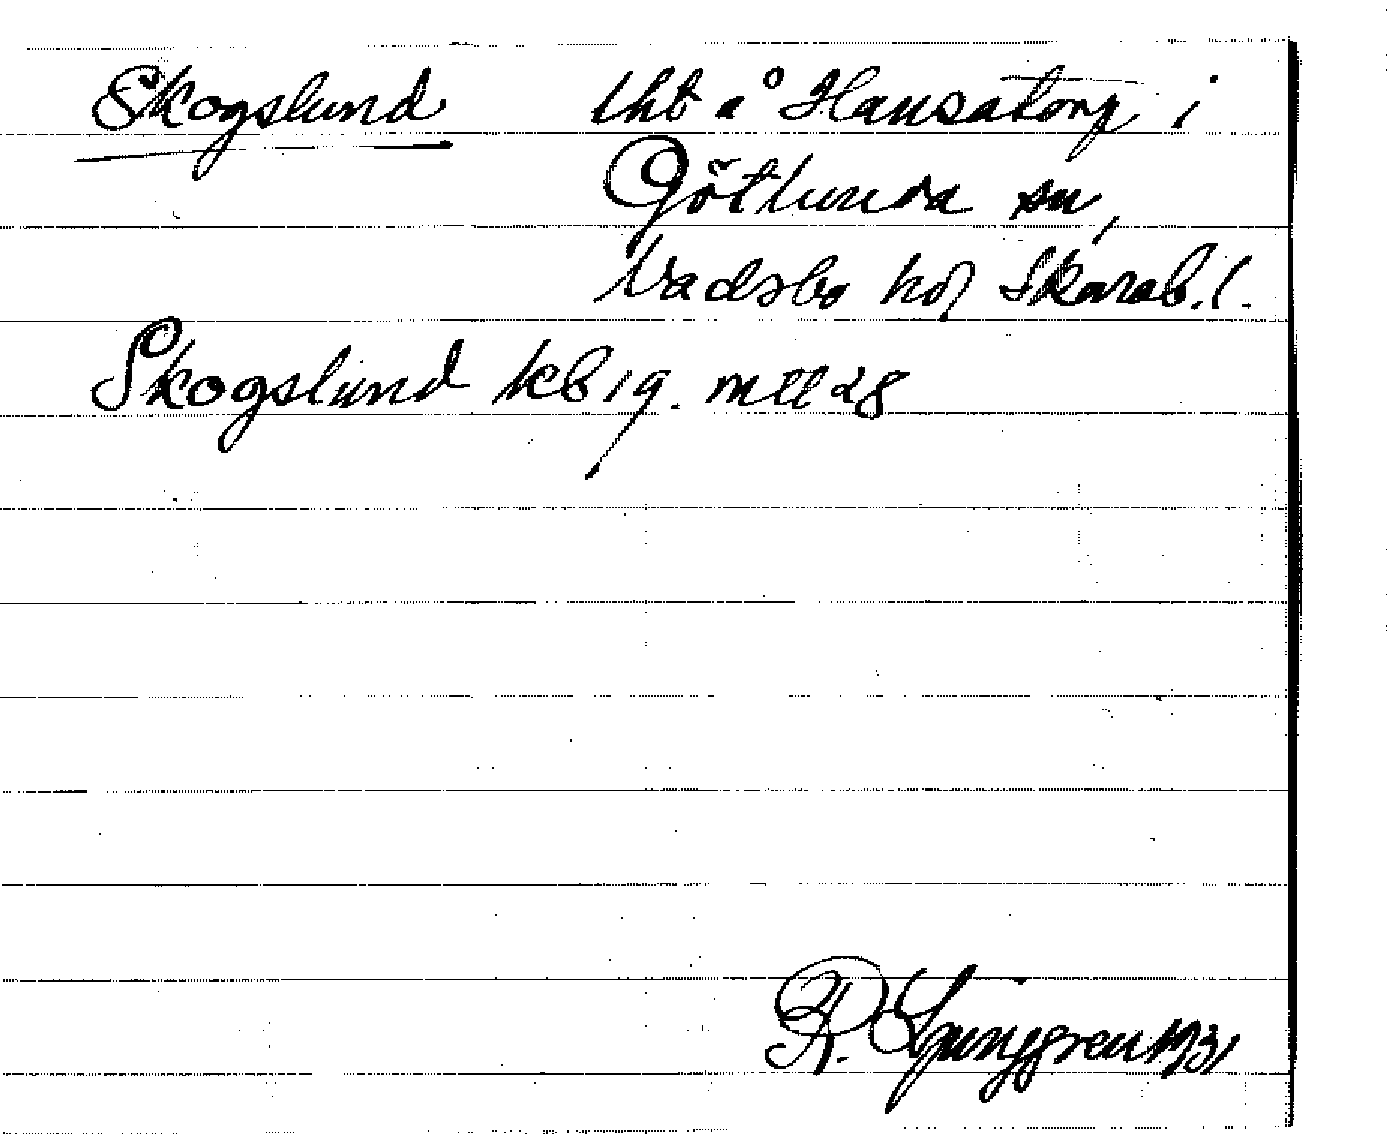 Skogslund lht å Hansatorp i
Götlunda sn,
Vadsbo hd, Skarab. l.
Skogslund kb 19. mtl 28
R. Ljunggren 1931